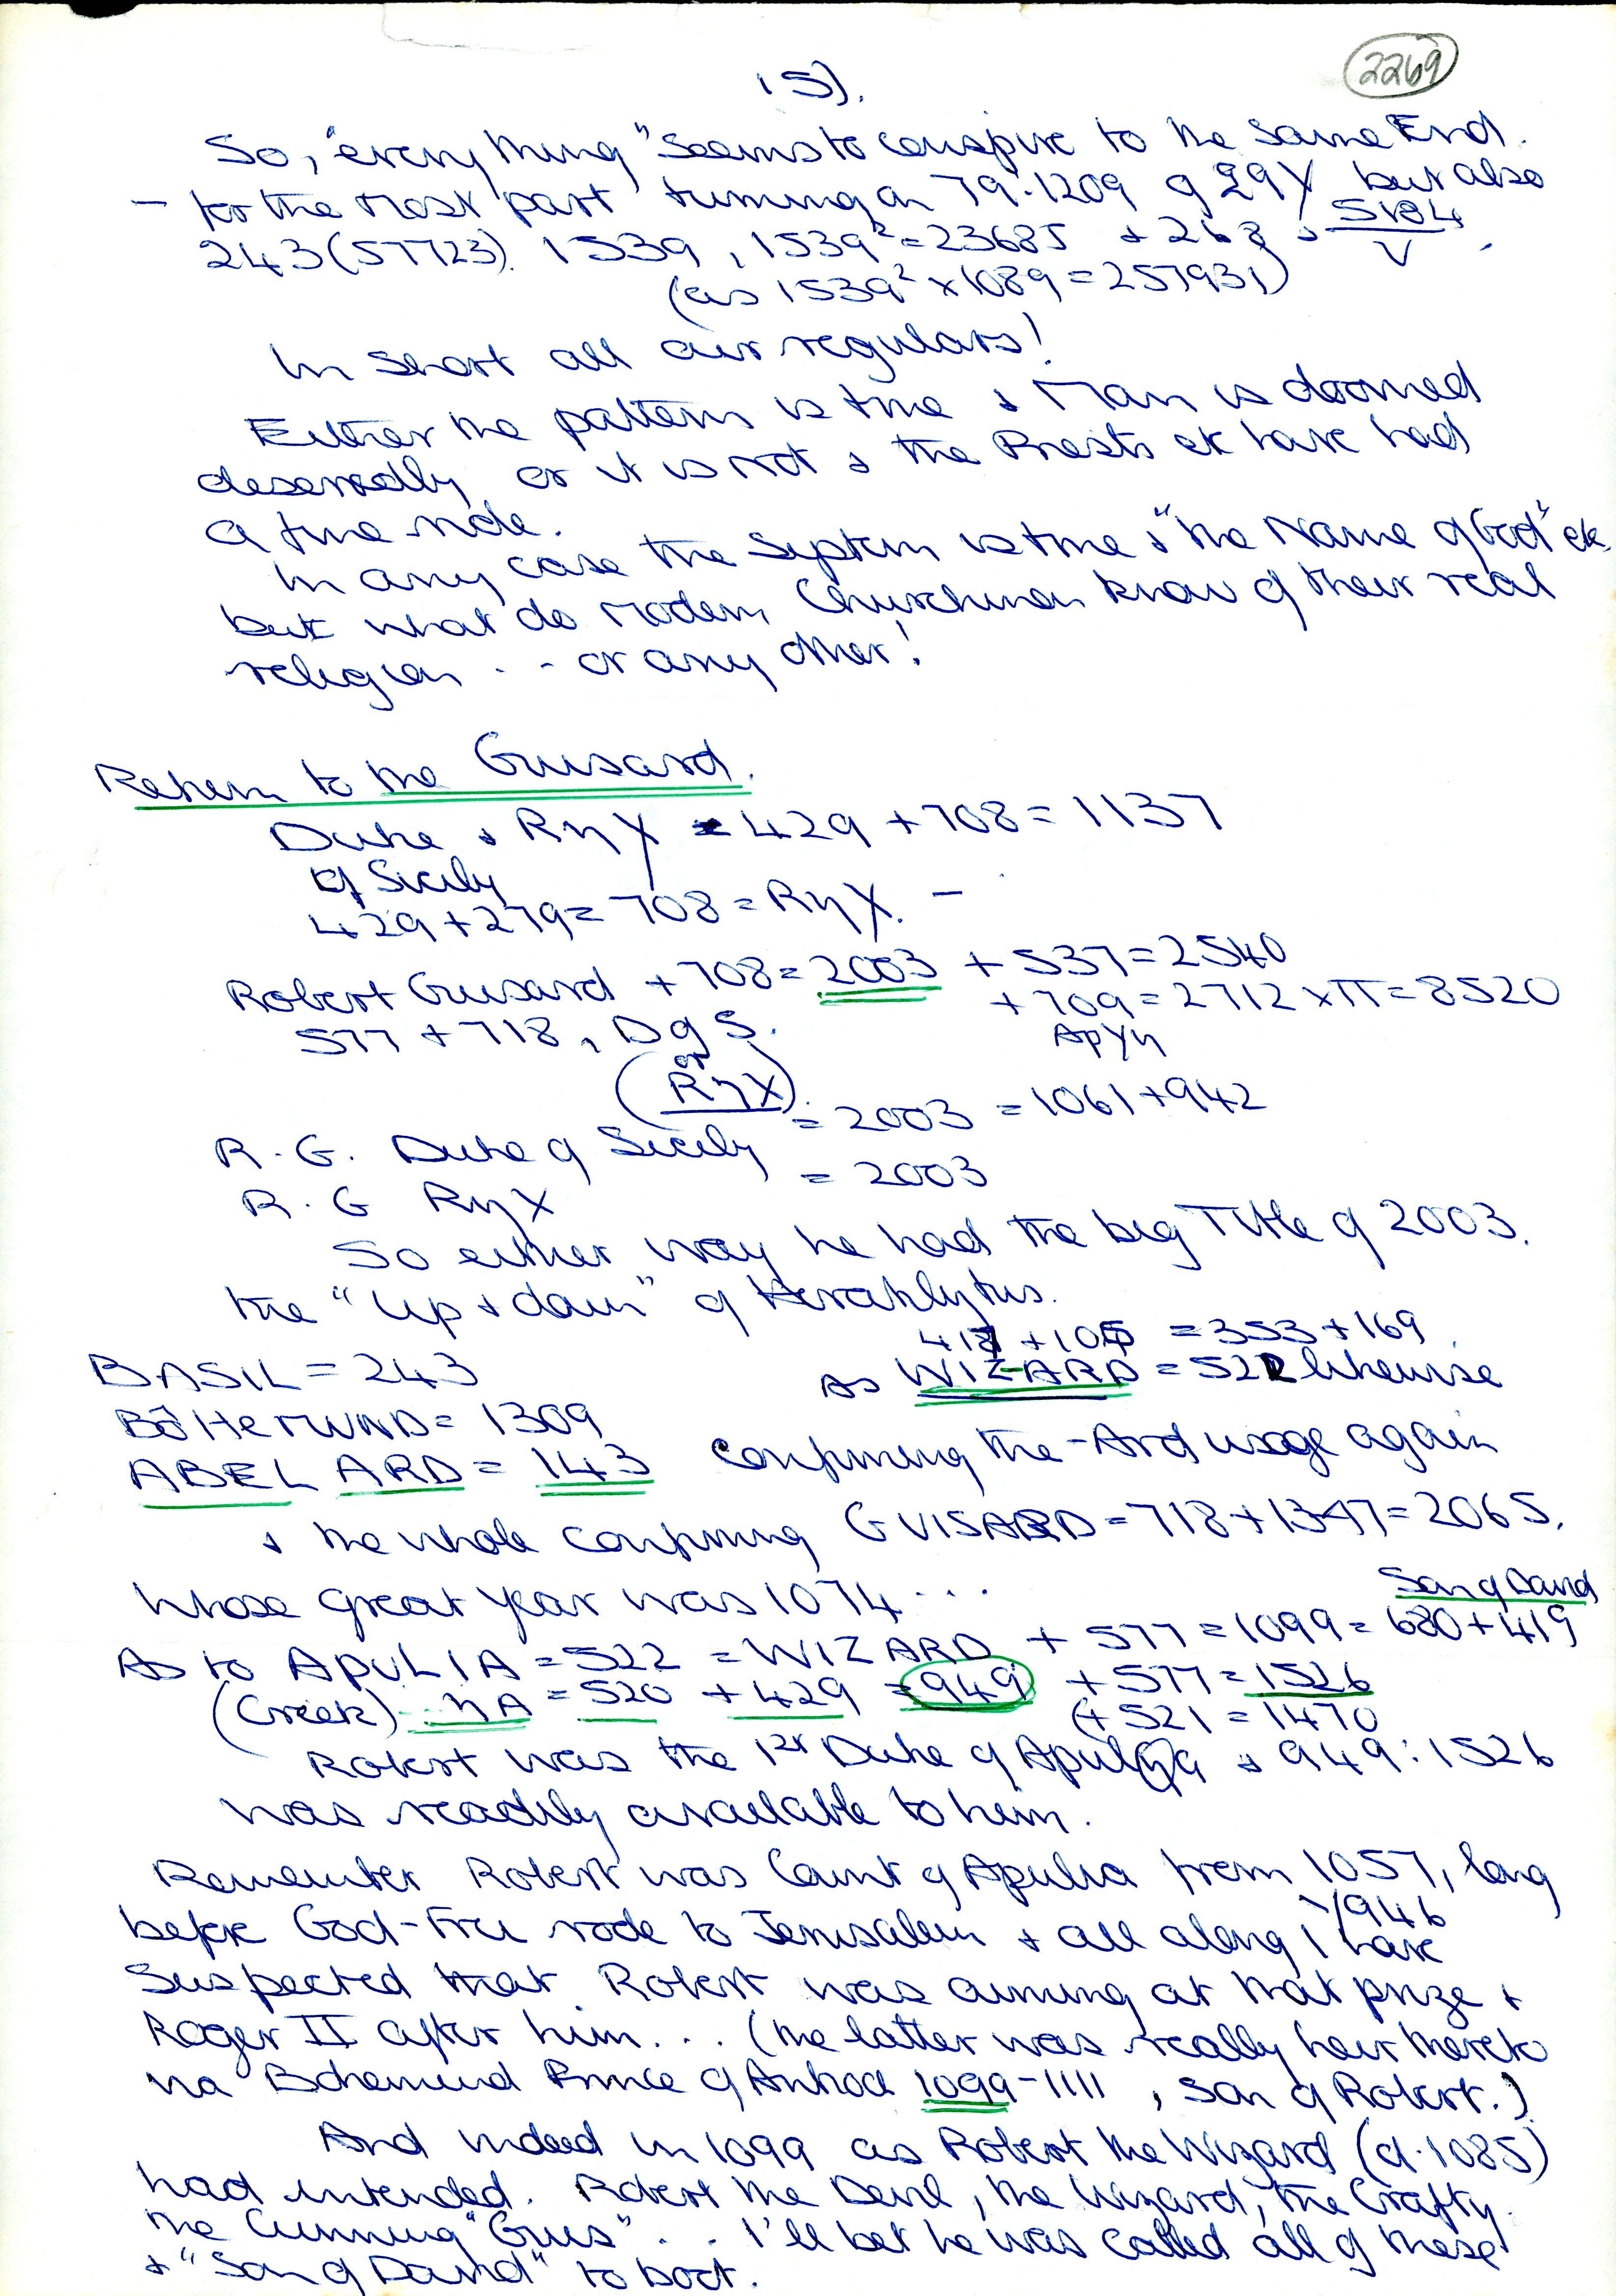 2269
15).
So, "everything" seems to conspire to the same End.
- for the most part turning on 79.1209 of 29Y but also
243 (57723). 1539, 1539² = 23685 + 263 +
V
(as 1539² x 1089 = 257931)
In short all our regulars!
Either the pattern is true + Man is doomed
deservedly, or it is not + the Priests etc have had
a fine ride.
In any case the System is true + "the Name of God" etc.
but what do modern Churchmen know of their real
religion .. - or any other!
Return to the Guisard.
Duke + RηX = 429 + 708 = 1137
of Sicily
429 + 279 = 708 = RηX. -
Robert Guisard + 708 = 2003 + 537 = 2540
+ 709 = 2712 x π = 8520
577 + 718, D of S.
ApYη
(or RηX)
R.G. Duke of Sicily = 2003 = 1061 + 942
R.G RηX = 2003
So either way he had the big Title of 2003.
the "up + down" of Heraklytus.
417 + 105 = 353 + 169.
BASIL = 243
As WIZARD = 522 likewise
BôHeMUND = 1309
ABEL ARD = 143 confirming the -Ard usage again
+ the whole confirming GVISARD = 718 + 1347 = 2065.
whose great year was 1074 ...
Son of David
As to APULIA = 522 = WIZARD + 577 = 1099 = 680 + 419
(Greek) -- ηA = 520 + 429 = 949 + 577 = 1526
(+ 521 = 1470
Robert was the 1st Duke of Apulηa + 949 : 1526
was readily available to him.
Remember Robert was Count of Apulia from 1057, long
/946
before God-Free rode to Jerusalem + all along I have
suspected that Robert was aiming at that prize +
Roger II after him... (the latter was really heir thereto
via Bohemund Prince of Antioch 1099-1111, son of Robert.)
And indeed in 1099 as Robert the Wizard (d.1085)
had intended. Robert the Devil, the Wizard, the Crafty.
the Cunning "Guis" . . I'll bet he was called all of these
+ "Son of David" to boot.